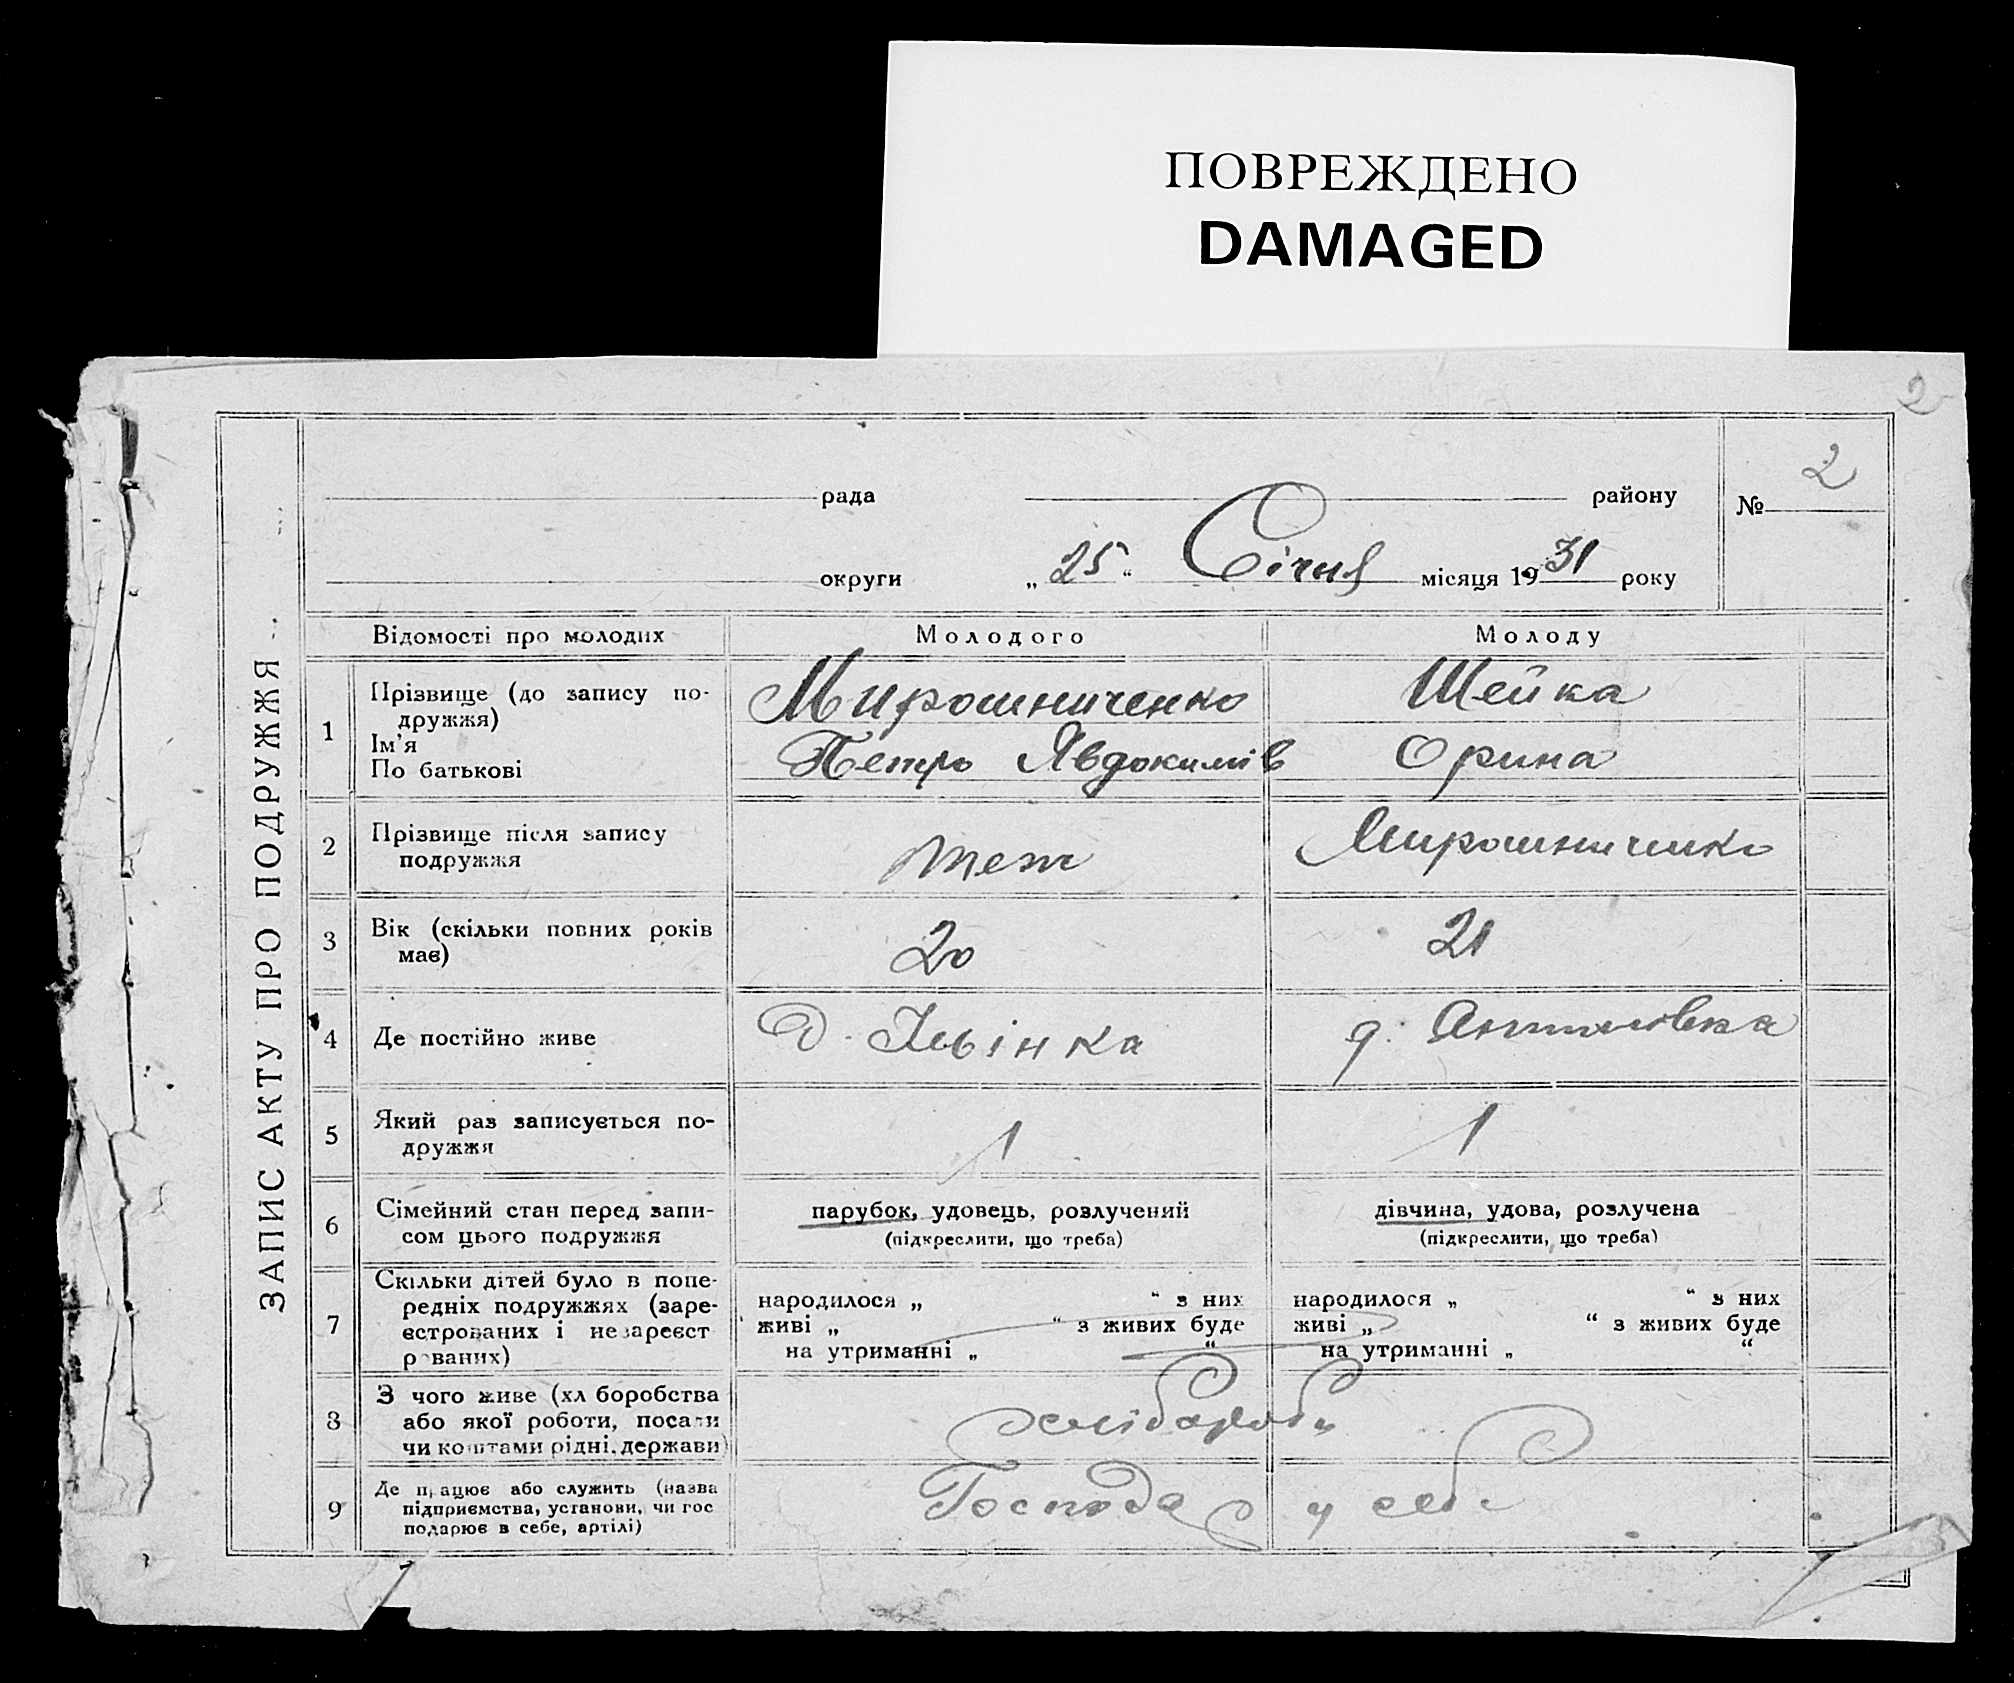 ПОВРЕЖДЕНО
DAMAGED
2
ЗАПИС АКТУ ПРО ПОДРУЖЖЯ
рада району № 2
округи „ 25 “ Січня місяця 1931 року
Відомості про молодих Молодого Молоду
1 Прізвище (до запису по-
дружжя)
Ім'я
По батькові
Мирошниченко
Петро Явдокимів
Шейка
Орина
2 Прізвище після запису
подружжя
теж
Мирошниченко
3 Вік (скільки повних років
має)
20
21
4 Де постійно живе
д. Ільінка
д.
5 Який раз записується по-
дружжя
1
1
6 Сімейний стан перед запи-
сом цього подружжя
парубок, удовець, розлучений
(підкреслити, що треба)
дівчина, удова, розлучена
(підкреслити, що треба)
7 Скільки дітей було в попе-
редніх подружжях (заре-
єстрованих і незареєст
рованих)
народилося „ “ з них
живі „ “ з живих буде
на утриманні „ “
народилося „ “ з них
живі „ “ з живих буде
на утриманні „ “
8 З чого живе (хліборобства
або якої роботи, посади
чи коштами рідні, держави)
9 Де працює або служить (назва
підприємства, установи, чи гос
подарює в себе, артілі)
Господа у себе